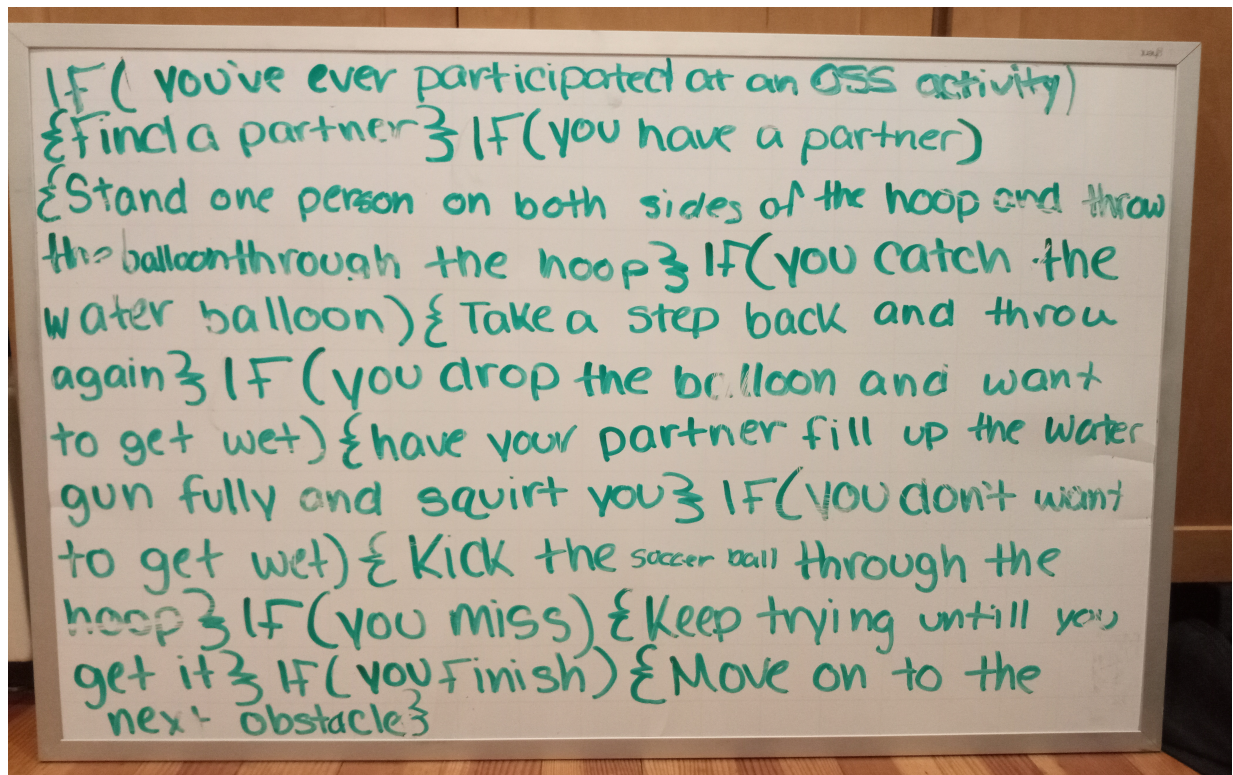 IF( you've ever participated at an OSS activity)
{Find a partner} IF(you have a partner)
{Stand one person on both sides of the hoop and throw
the balloon through the hoop} IF(you catch the
water balloon) { Take a step back and throw
again} IF (you drop the balloon and want
to get wet) {have your partner fill up the water
gun fully and squirt you} IF(you don't want
to get wet) { Kick the soccer ball through the
hoop} IF(you miss) {Keep trying untill you
get it} IF( you Finish) {Move on to the
next obstacle}